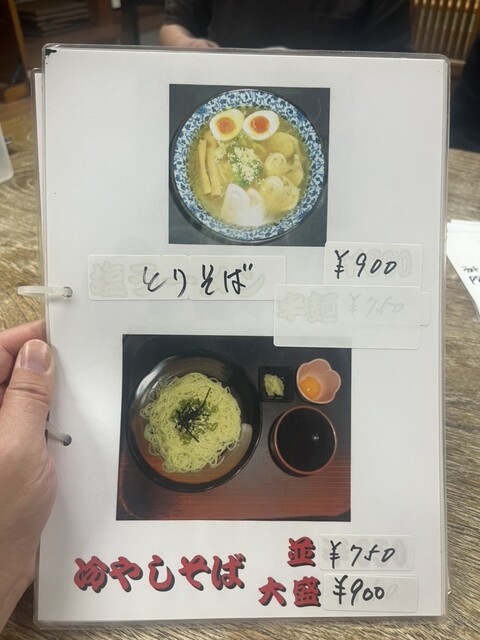 とりそば
¥900
半麺 ¥750
冷やしそば
並 ¥750
大盛 ¥900